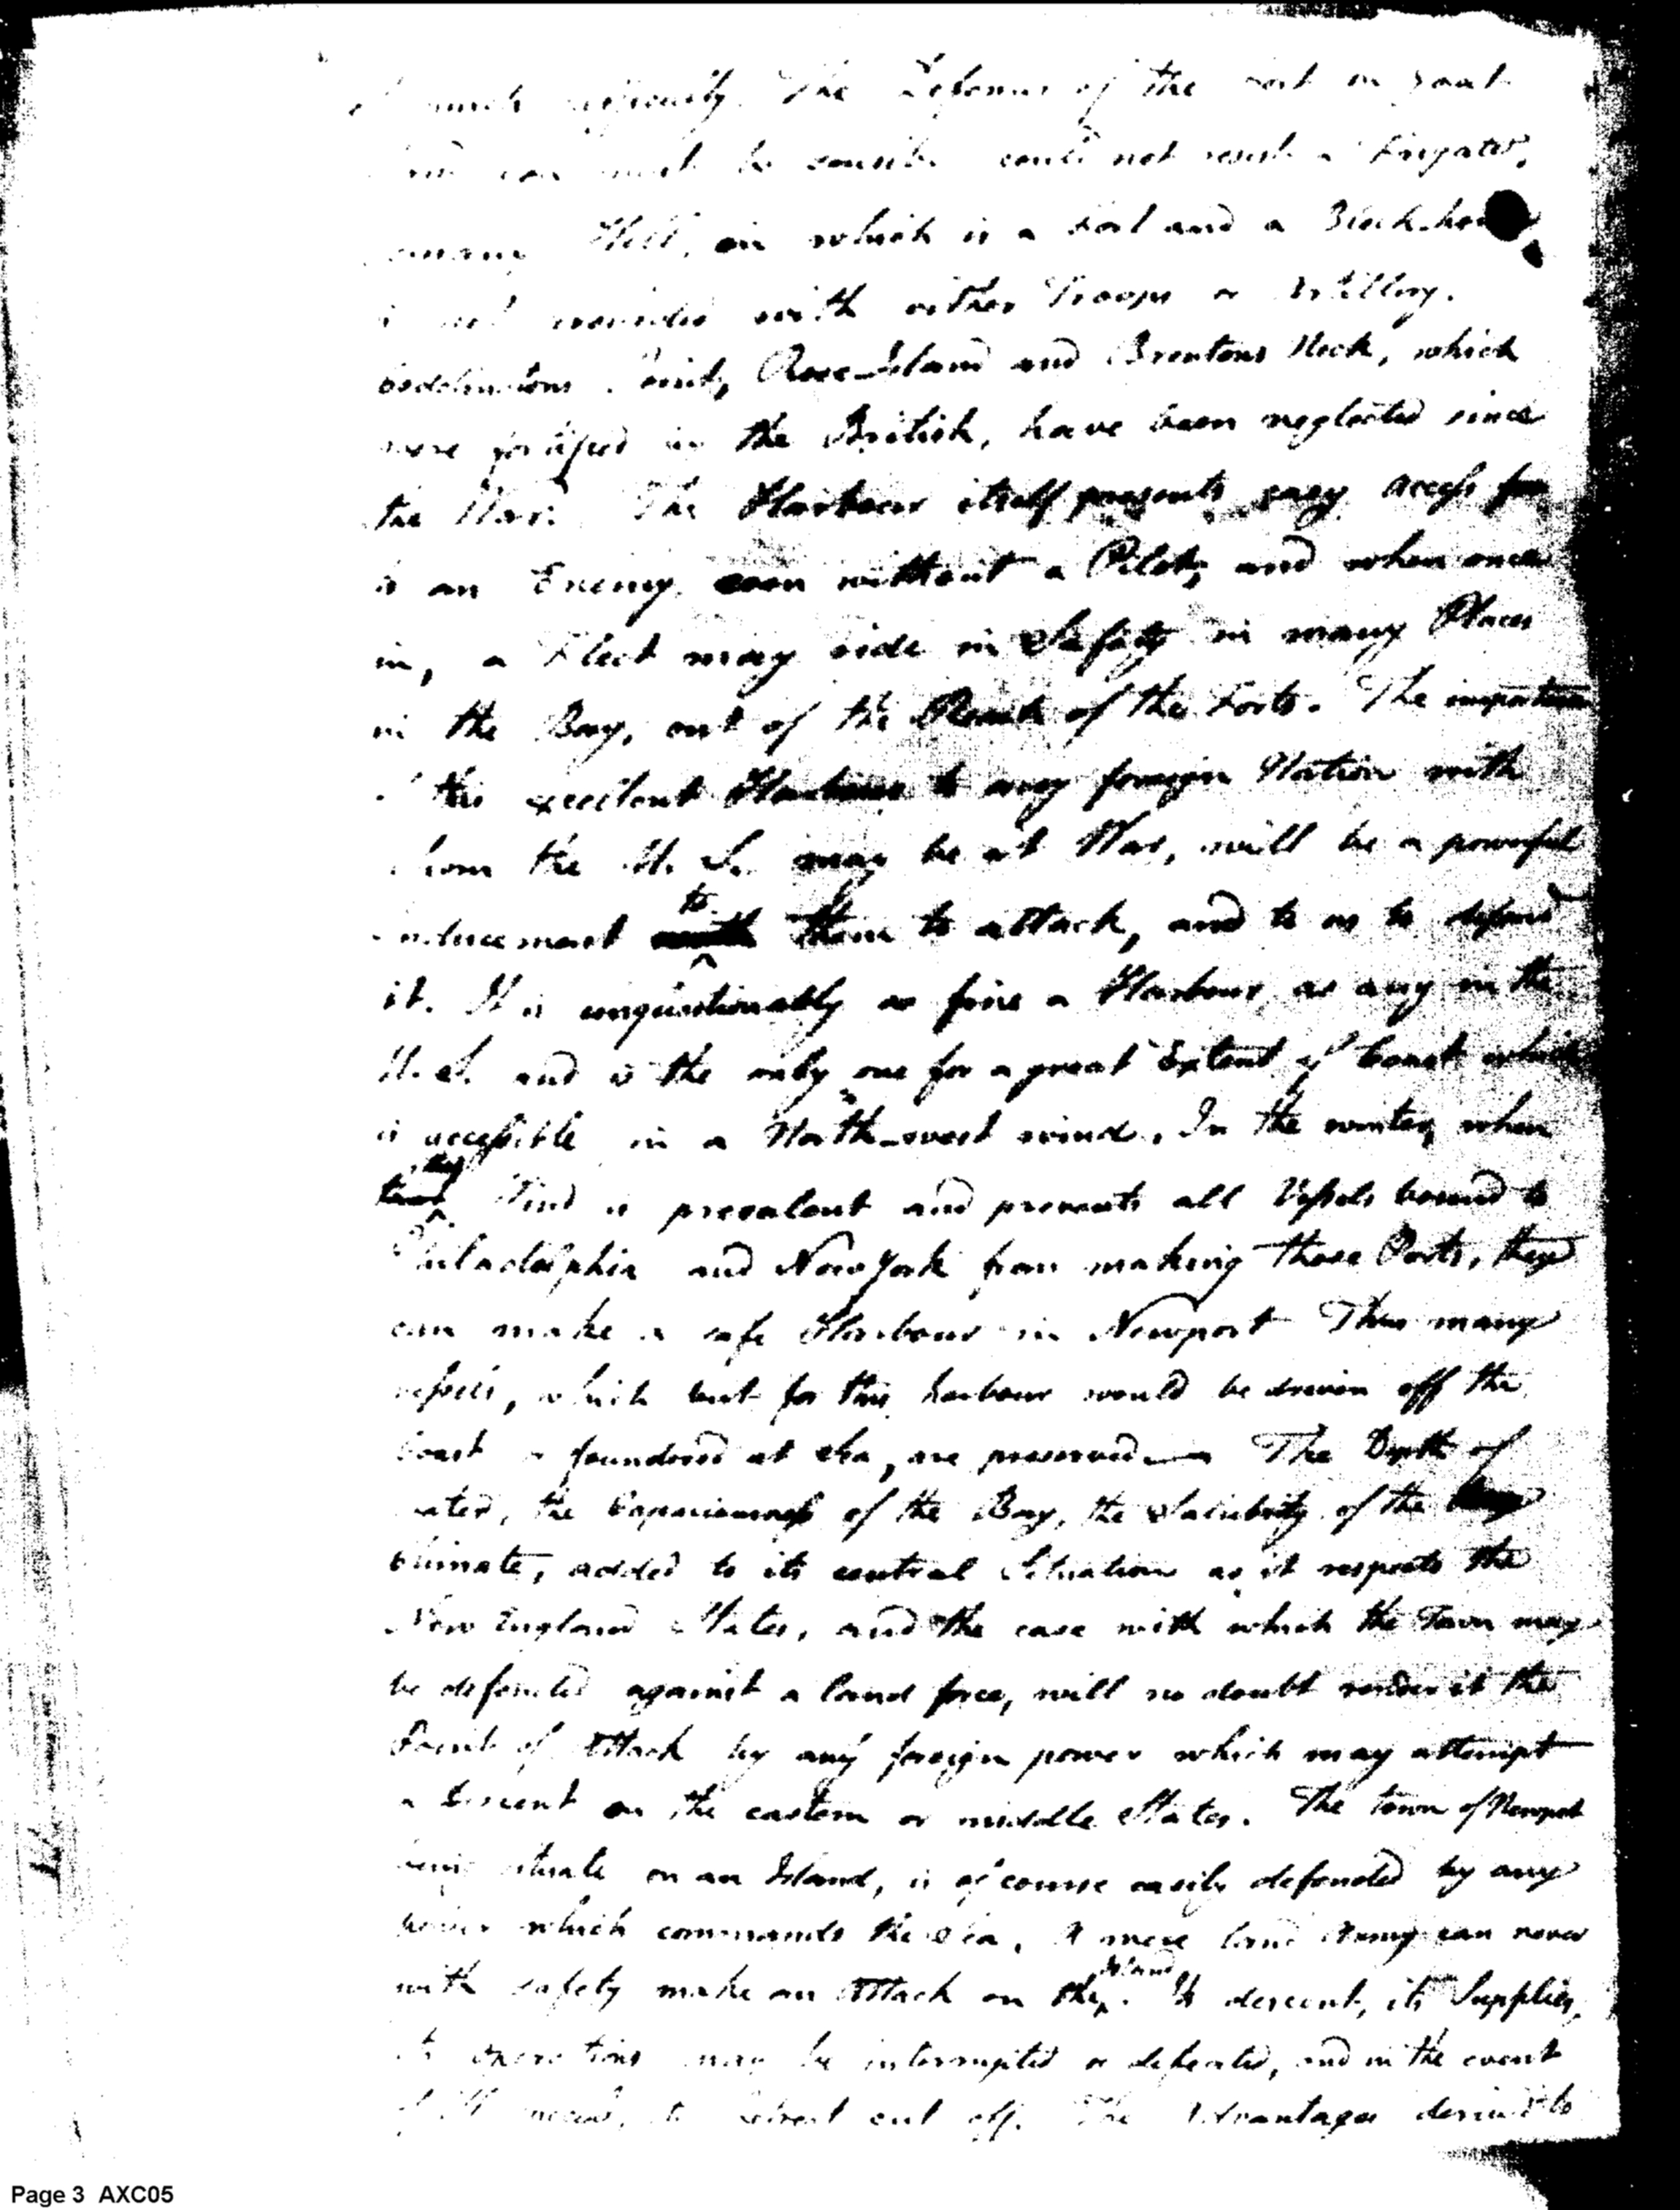 much The Defences of the Fort on Goat
could not resist a Frigate,
Hill, on which is a Fort and a Block-house
provided with either Troops or Artillery.
Point, Rose-Island and Brentons Neck, which
were fortified by the British, have been neglected since
the War. The Harbour itself presents easy access for
is an Enemy, even without a Pilot, and when once
in, a Fleet may ride in Safety in many Places
in the Bay, out of the Reach of the Forts. The importance
of this excellent Harbour to any foreign Nation with
whom the U. S. may be at War, will be a powerful
inducement to them to attack, and to us to defend
it. It is unquestionably as fine a Harbour as any in the
U. S. and is the only one for a great Extent of Coast which
is accessible in a North-west wind. In the winter, when
this Wind is prevalent and prevents all Vessels bound to
Philadelphia and New York from making those Ports, they
can make a safe Harbour in Newport Thus many
vessels, which but for this harbour would be driven off the
Coast or foundered at Sea, are preserved— The Depth of
water, the Capaciousness of the Bay, the Salubrity of the
Climate, added to its central Situation as it respects the
New England States, and the ease with which the Town may
be defended against a land force, will no doubt render it the
Point of Attack by any foreign power which may attempt
a Descent on the eastern or middle States. The town of Newport
being situate on an Island, is of course easily defended by any
power which commands the Sea. A mere land Army can never
with safety make an Attack on the Island. Its descent, its Supplies,
its operations may be interrupted or defeated, and in the event
retreat cut off. The Advantages derived to